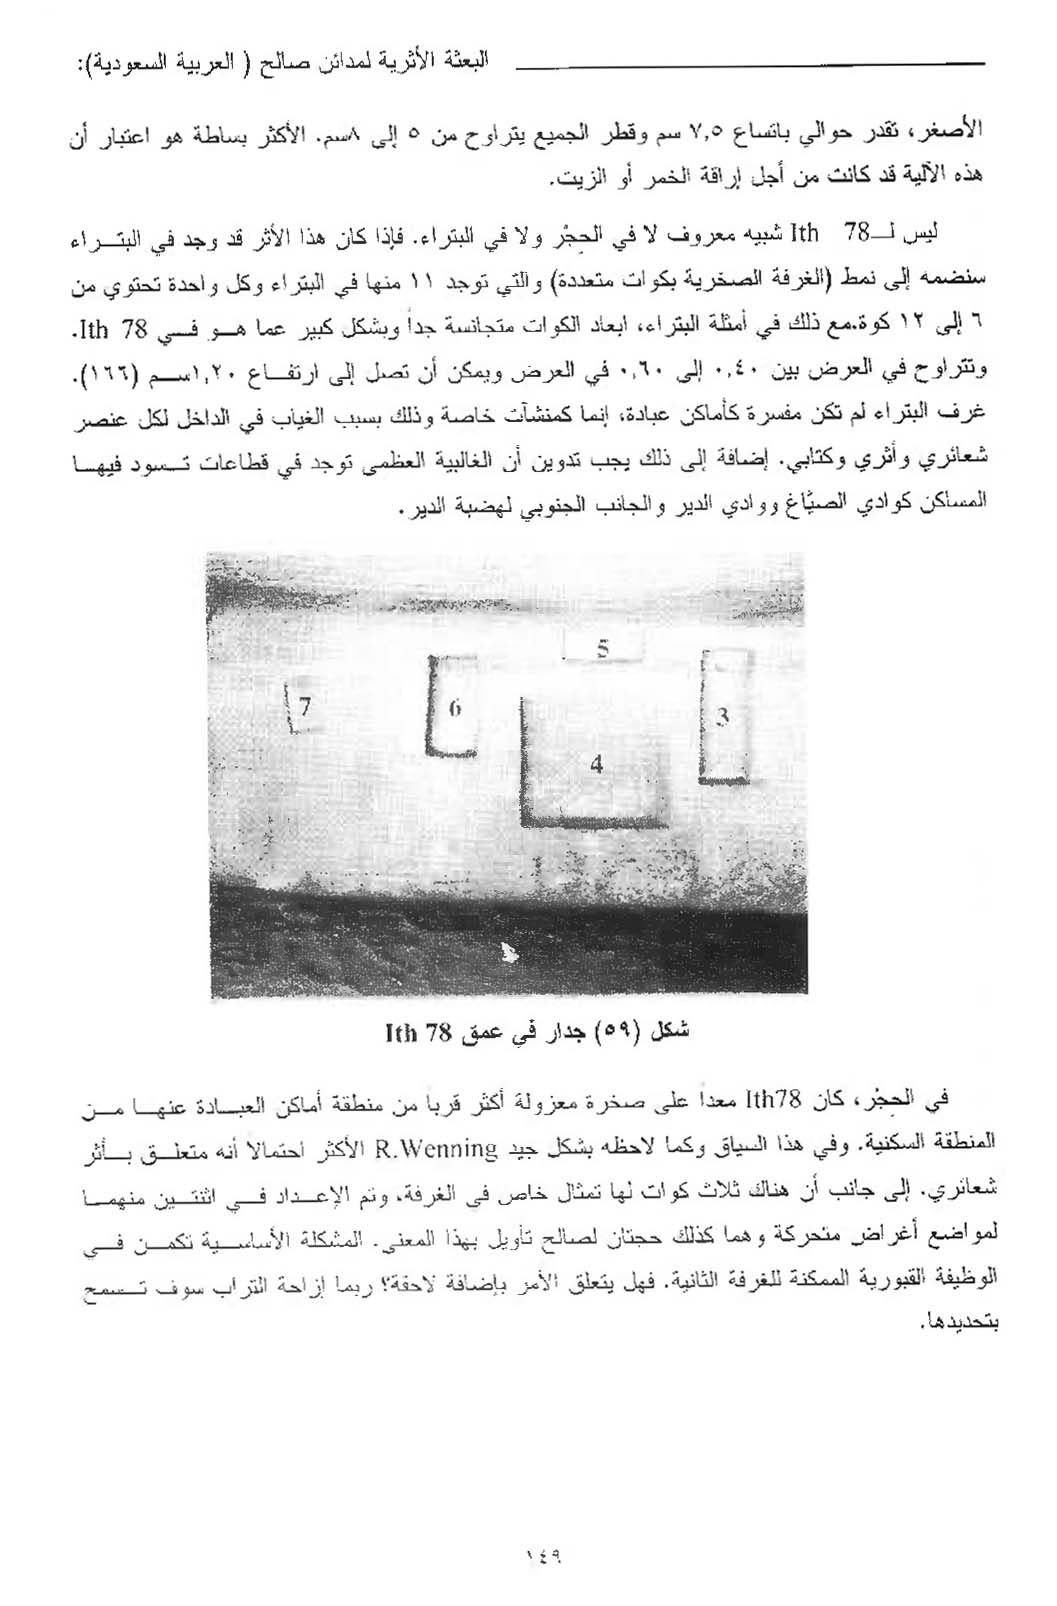 البعثة الأثرية لمدائن صالح ( العربية السعودية):
الأصغر، تقدر حوالي باتساع ٧,٥ سم وقطر الجميع يتراوح من ٥ إلى ٨سم. الأكثر بساطة هو اعتبار أن
هذه الآلية قد كانت من أجل إراقة الخمر أو الزيت.
ليس لـ Ith 78 شبيه معروف لا في الحِجْر ولا في البتراء. فإذا كان هذا الأثر قد وجد في البتراء
سنضمه إلى نمط (الغرفة الصخرية بكوات متعددة) والتي توجد ١١ منها في البتراء وكل واحدة تحتوي من
٦ إلى ١٢ كوة.مع ذلك في أمثلة البتراء، ابعاد الكوات متجانسة جداً وبشكل كبير عما هو في Ith 78.
وتتراوح في العرض بين ٠,٤٠ إلى ٠,٦٠ في العرض ويمكن أن تصل إلى ارتفاع ١,٢٠سم (١٦٦).
غرف البتراء لم تكن مفسرة كأماكن عبادة، إنما كمنشآت خاصة وذلك بسبب الغياب في الداخل لكل عنصر
شعائري وأثري وكتابي. إضافة إلى ذلك يجب تدوين أن الغالبية العظمى توجد في قطاعات تسود فيها
المساكن كوادي الصيَّاغ ووادي الدير والجانب الجنوبي لهضبة الدير.
5
7
6
3
4
شكل (٥٩) جدار في عمق Ith 78
في الحِجْر، كان Ith78 معداً على صخرة معزولة أكثر قربا من منطقة أماكن العبادة عنها من
المنطقة السكنية. وفي هذا السياق وكما لاحظه بشكل جيد R.Wenning الأكثر احتمالا أنه متعلق بأثر
شعائري. إلى جانب أن هناك ثلاث كوات لها تمثال خاص في الغرفة، وتم الإعداد في اثنتين منهما
لمواضع أغراض متحركة وهما كذلك حجتان لصالح تأويل بهذا المعنى. المشكلة الأساسية تكمن في
الوظيفة القبورية الممكنة للغرفة الثانية. فهل يتعلق الأمر بإضافة لاحقة؟ ربما إزاحة التراب سوف تسمح
بتحديدها.
١٤٩